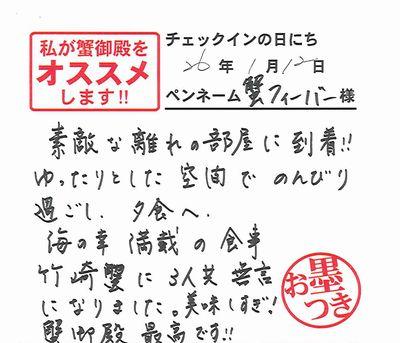 私が蟹御殿を
オススメ
します!!
チェックインの日にち
26年 1月12日
ペンネーム 蟹フィーバー様
素敵な離れの部屋に到着!!
ゆったりとした空間でのんびり
過ごし、夕食へ。
海の幸満載の食事
竹崎蟹に3人共無言
になりました。美味しすぎ!
蟹御殿最高です!!
お墨つき